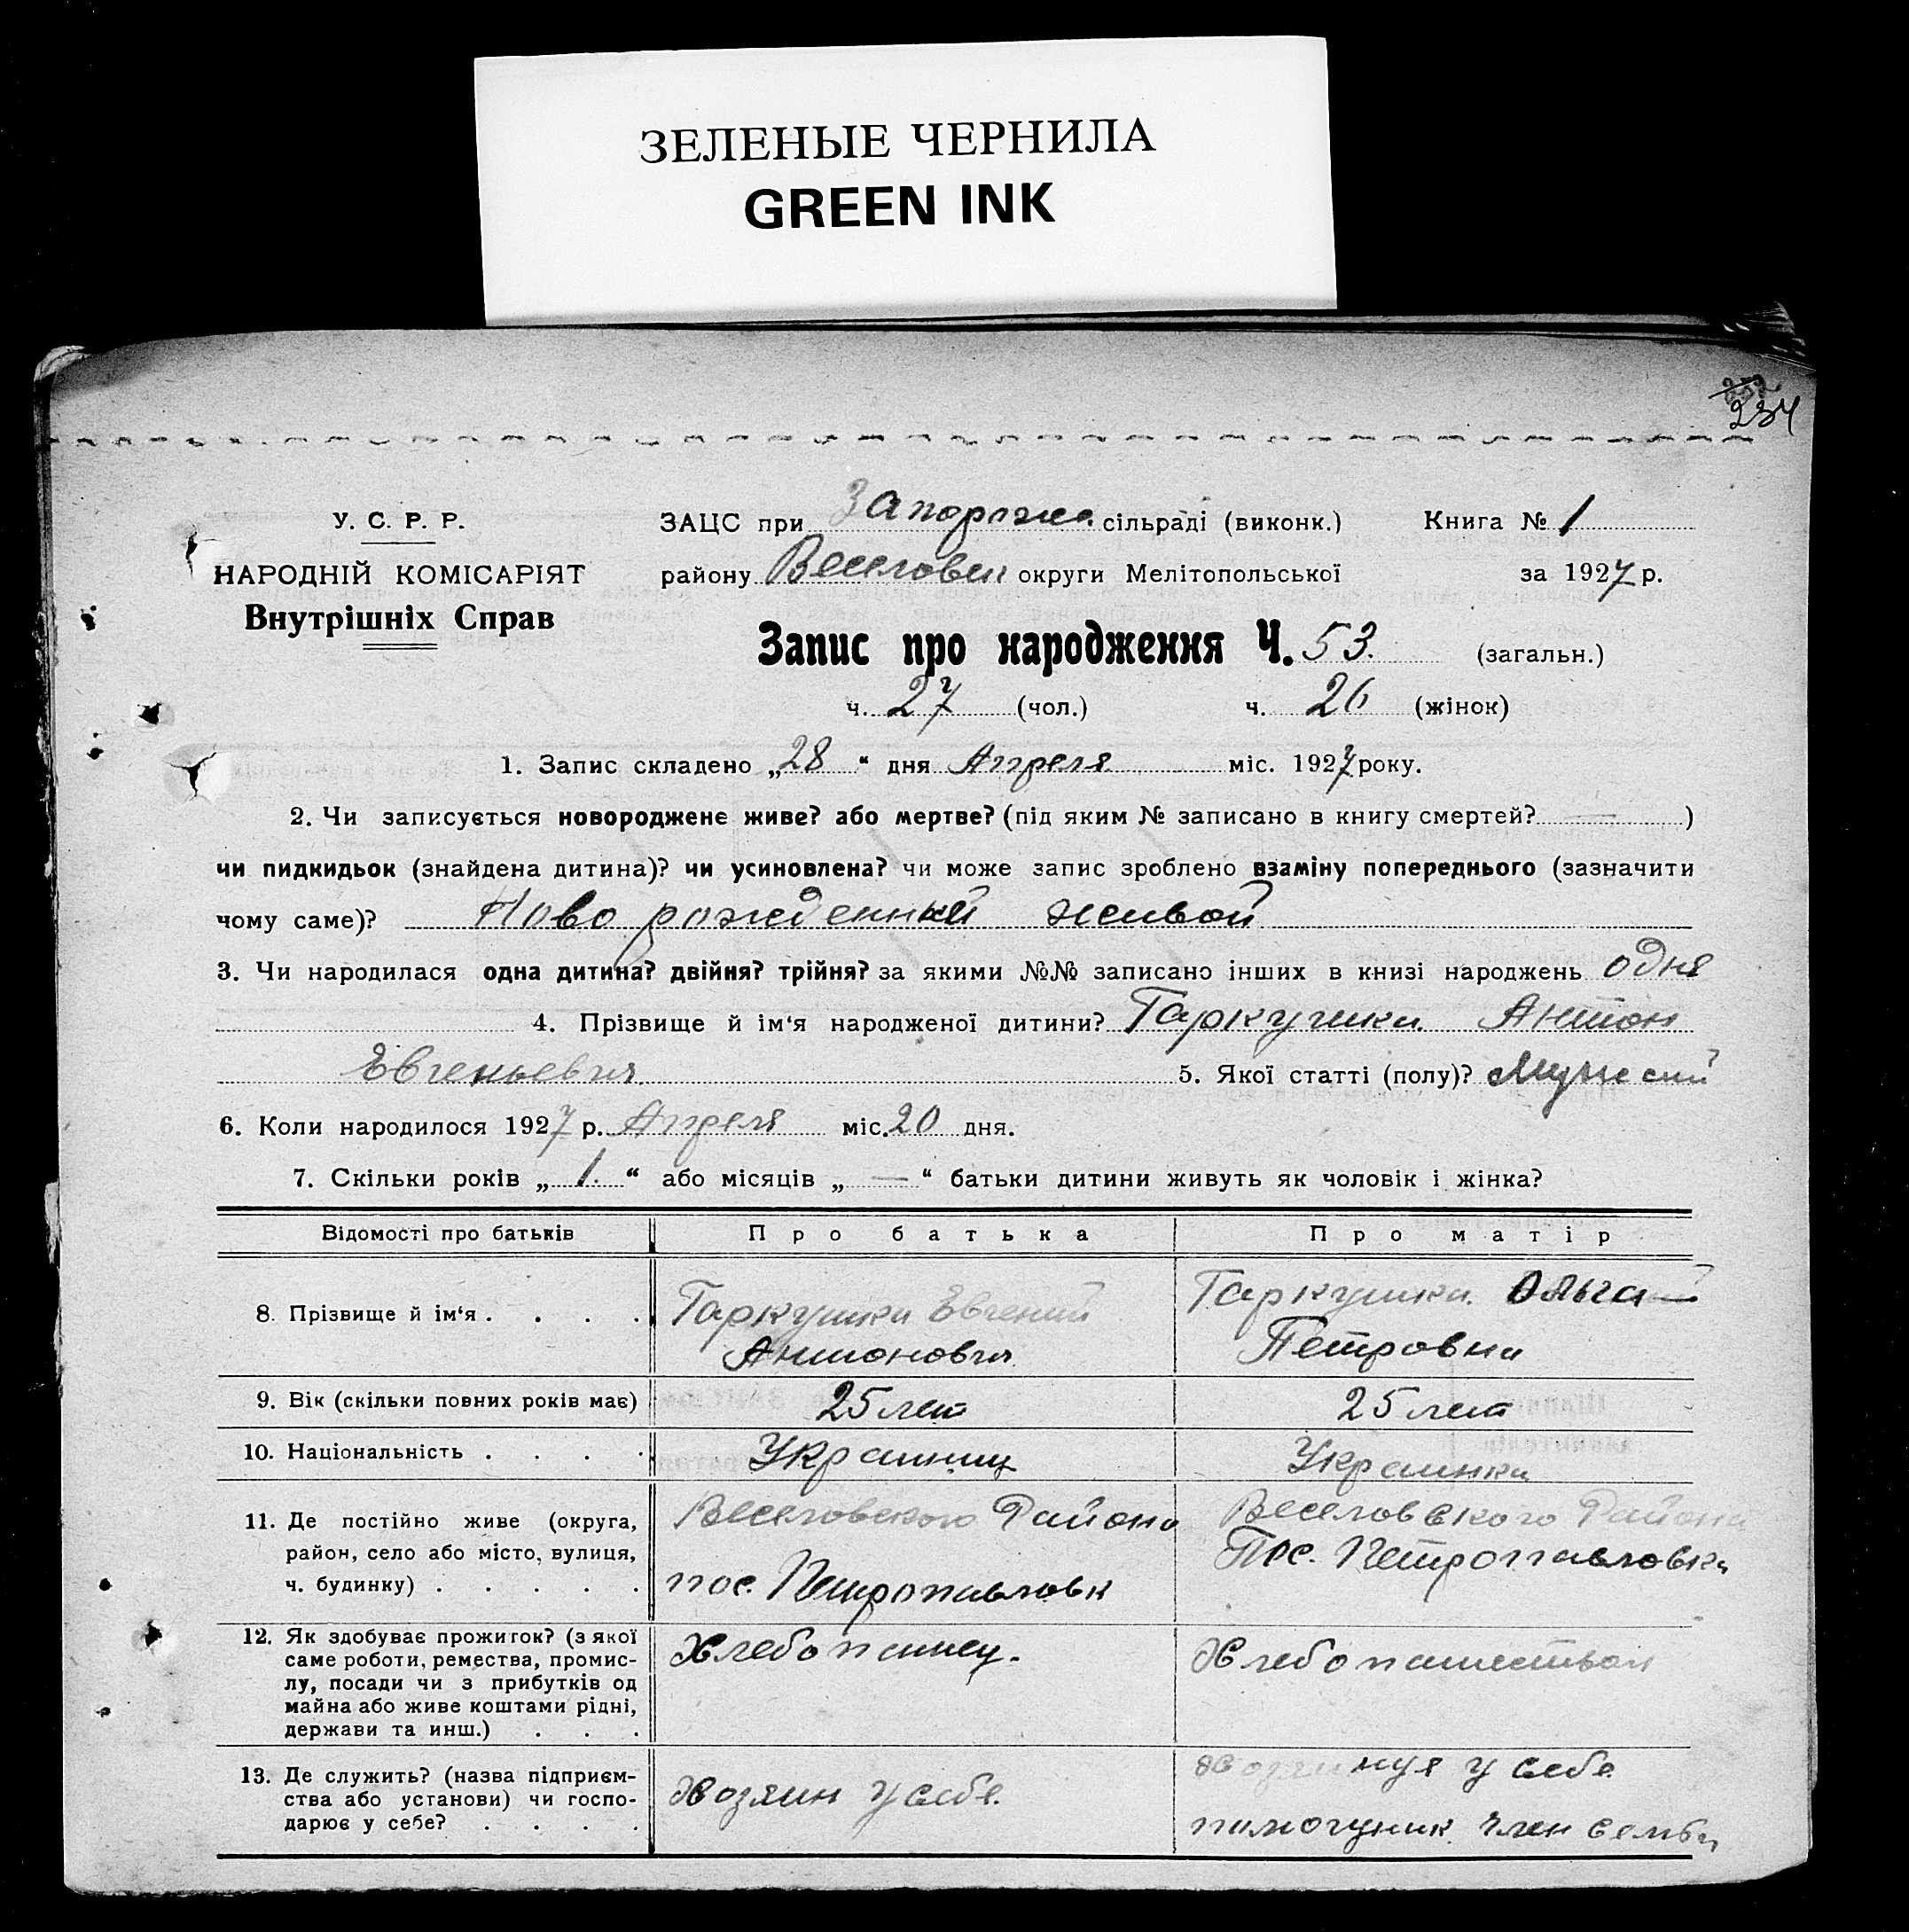 ЗЕЛЕНЫЕ ЧЕРНИЛА
GREEN INK
234
У. С. Р. Р.
НАРОДНІЙ КОМІСАРІЯТ
Внутрішніх Справ
ЗАЦС при Запорожс. сільраді (виконк.) Книга № 1
району Веселовск округи Мелітопольської за 1927 р.
Запис про народження Ч. 53. (загальн.)
ч. 27 (чол.) ч. 26 (жінок)
1. Запис складено „28“ дня Апреля міс. 1927 року.
2. Чи записується новороджене живе? або мертве? (під яким № записано в книгу смертей? — )
чи пидкидьок (знайдена дитина)? чи усиновлена? чи може запис зроблено взаміну попереднього (зазначити
чому саме)? Ново рожденный живой
3. Чи народилася одна дитина? двійня? трійня? за якими №№ записано інших в книзі народжень одня
4. Прізвище й ім‘я народженої дитини? Гаркушка Антон
Евгеньевич 5. Якої статті (полу)? Мужский
6. Коли народилося 1927 р. Апреля міс. 20 дня.
7. Скільки років „ 1. “ або місяців „ — “ батьки дитини живуть як чоловік і жінка?
Відомості про батьків Про батька Про матір
8. Прізвище й ім‘я . . . . Гаркушка Евгений Антонович Гаркушка Ольга Петровна
9. Вік (скільки повних років має) 25 лет 25 лет
10. Національність . . . . Украинец Украинка
11. Де постійно живе (округа,
район, село або місто, вулиця,
ч. будинку) . . . . .
Веселовского Района
пос. Петропавловк
Веселовского Района
Пос. Петропавловка
12. Як здобуває прожиток? (з якої
саме роботи, ремества, промис-
лу, посади чи з прибутків од
майна або живе коштами рідні,
держави та инш.) . . .
Хлебопашец.
Хлебопашеством
13. Де служить? (назва підприєм-
ства або установи) чи госпо-
дарює у себе? . . . .
Хозяин у себе.
у себе
член семьи